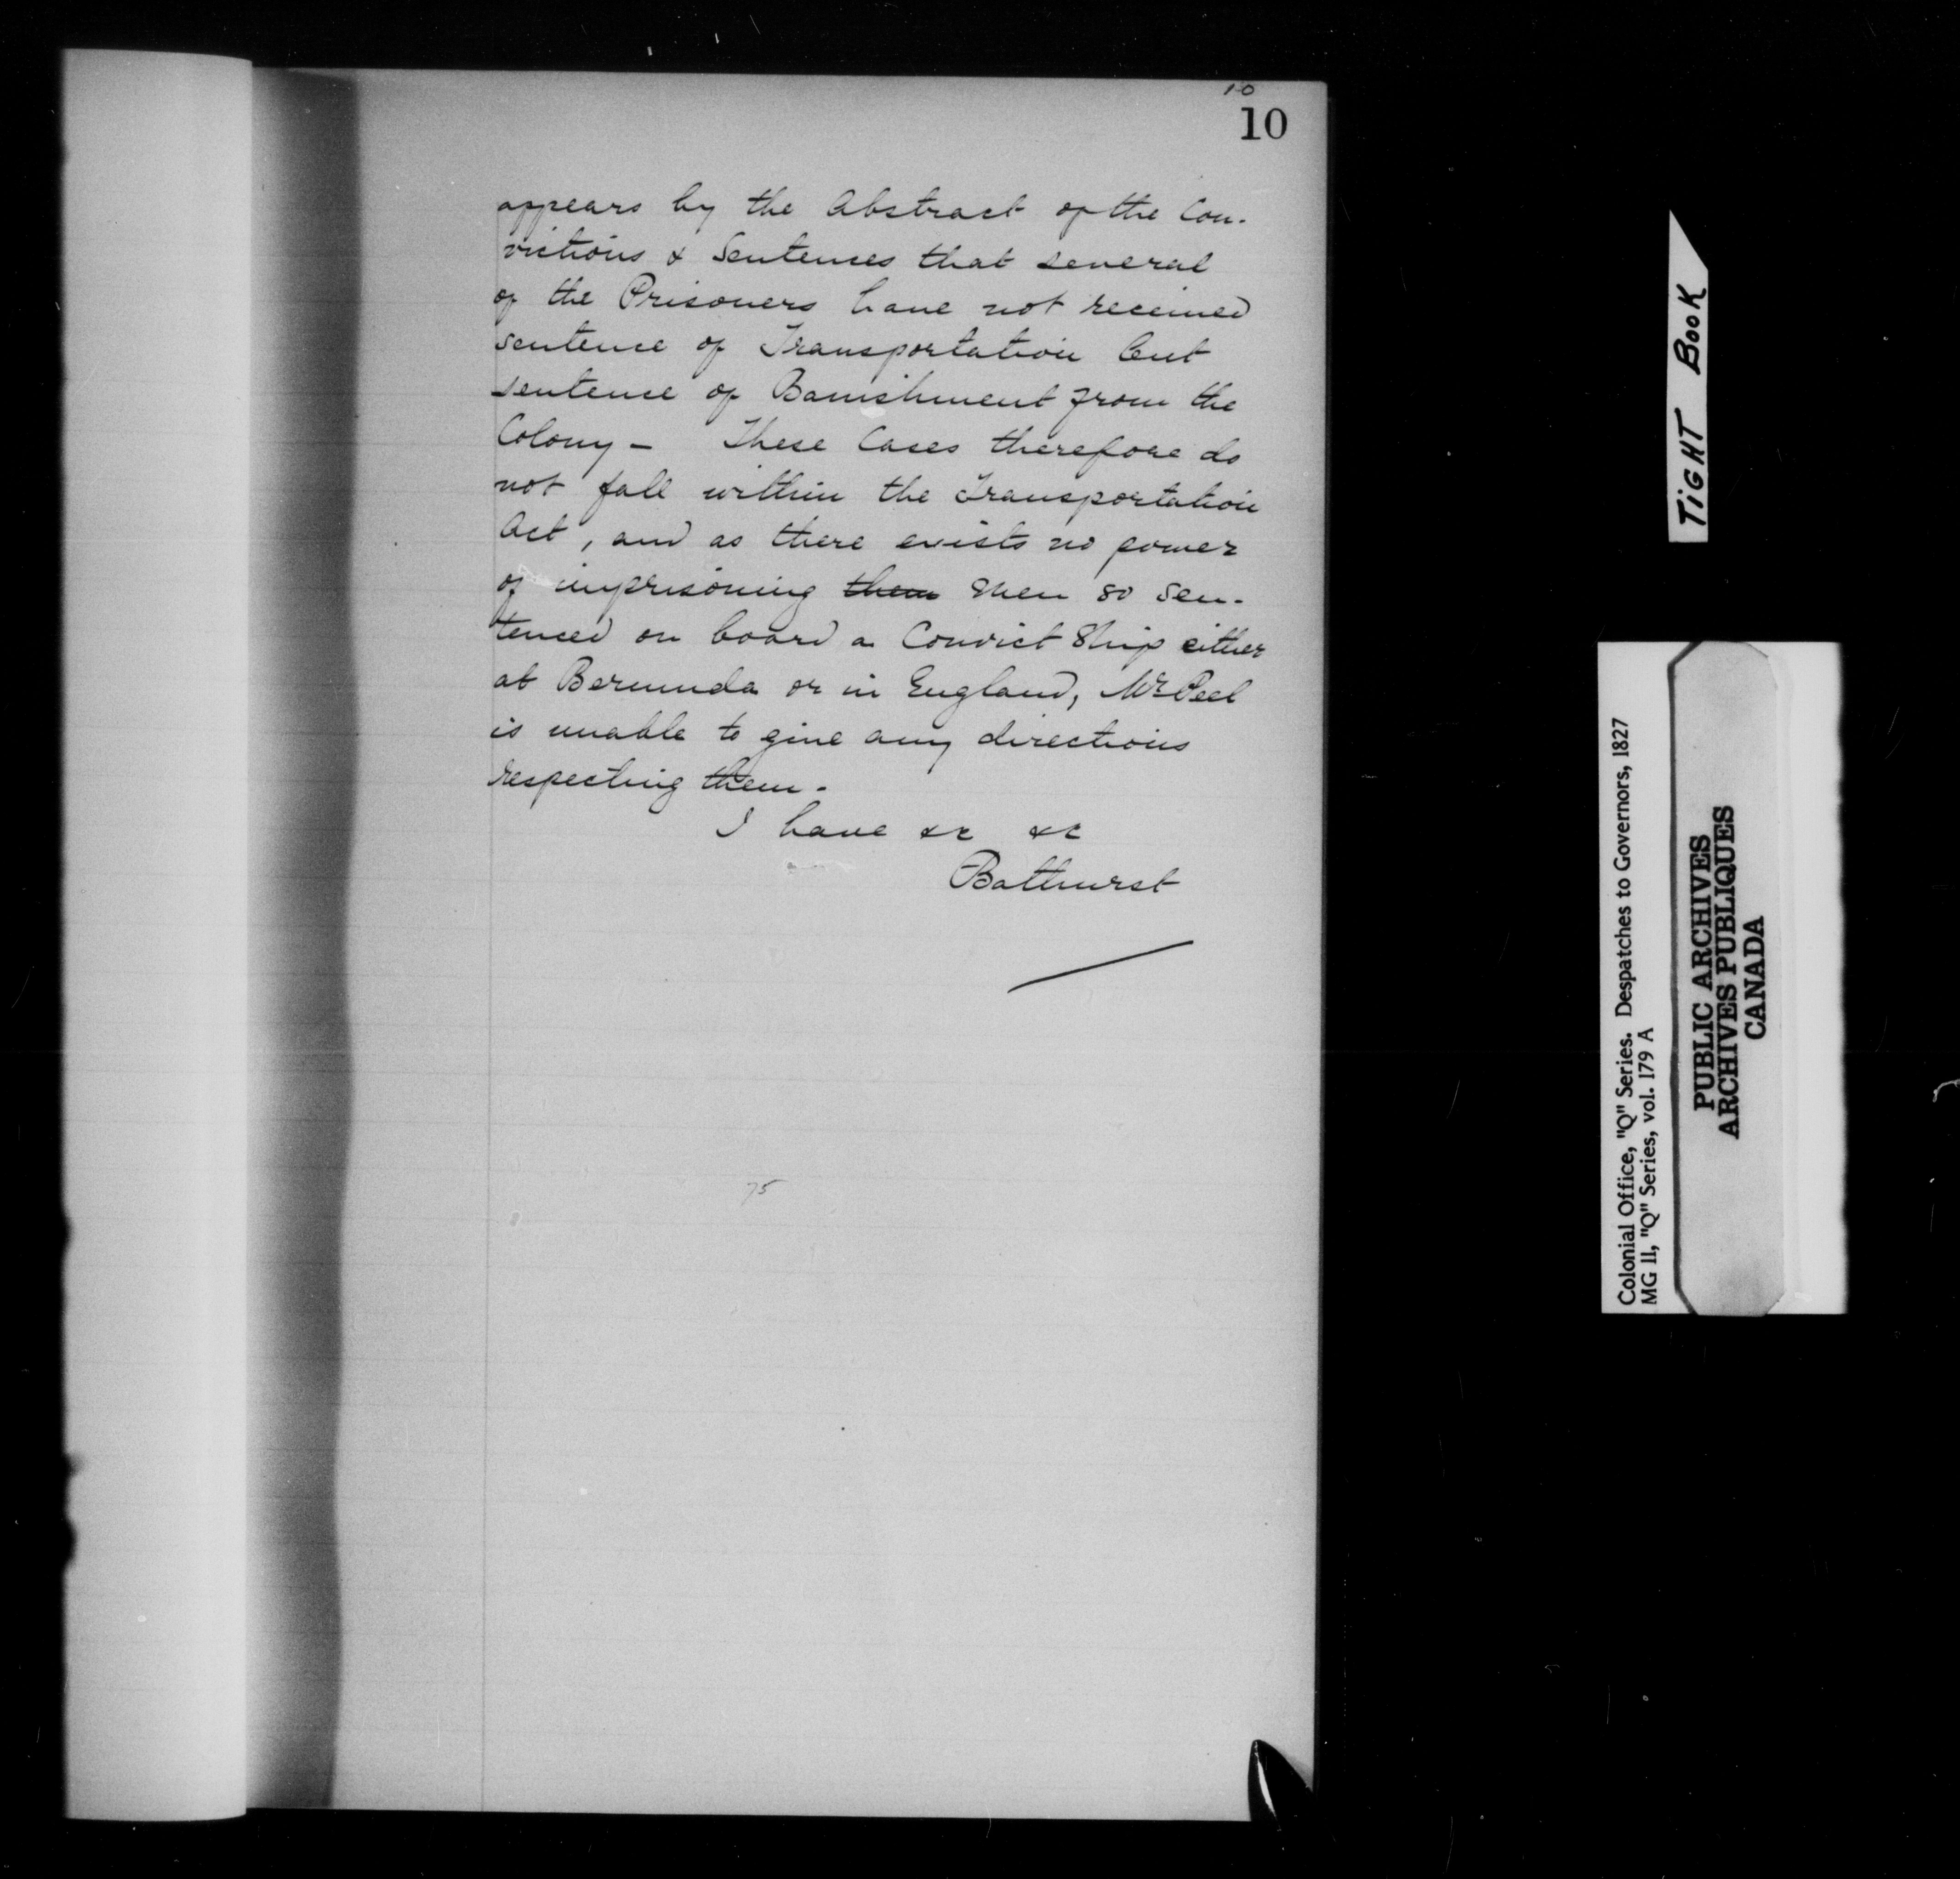 10
10
appears by the Abstract of the Con-
victions & Sentences that several
of the Prisoners have not received
sentence of Transportation but
sentence of Banishment from the
Colony - These Cases therefore do
not fall within the Transportation
Act, and as there exists no power
of imprisoning them Men so sen-
tenced on board a Convict Ship either
at Bermuda or in England, Mr Peel
is unable to give any directions
respecting them.
I have &c &c
Bathurst
75
TIGHT BOOK
Colonial Office, "Q" Series. Despatches to Governors, 1827
MG 11, "Q" Series, vol. 179 A
PUBLIC ARCHIVES
ARCHIVES PUBLIQUES
CANADA